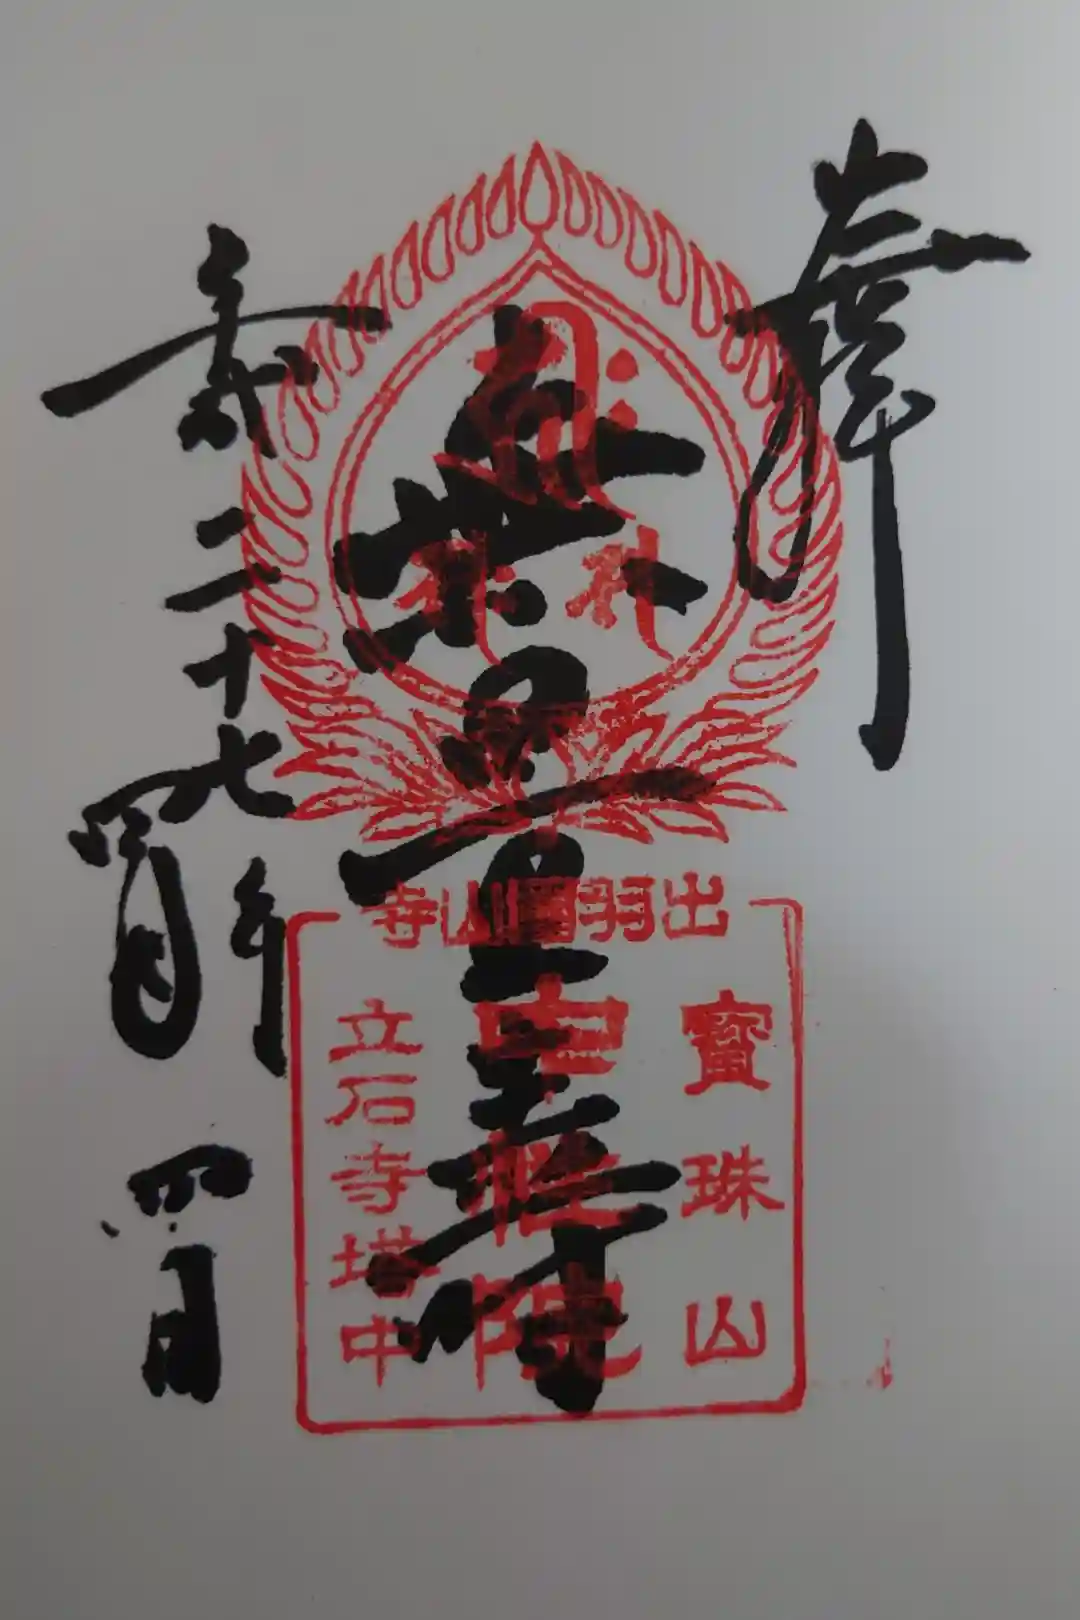 奉拝
無量壽
平成二十七年
四月
四日
出羽國山寺
寶珠山
中性院
立石寺塔中